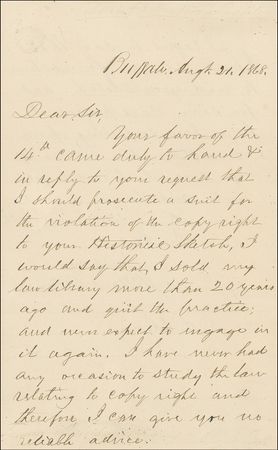 Buffalo, Augt. 21. 1868.
Dear Sir,
Your favor of the
14th came duly to hand &
in reply to your request that
I should prosecute a suit for
the violation of the copy right
to your Historical Sketch, I
would say that, I sold my
law library more than 20 years
ago and quit the practice;
and never expect to engage in
it again. I have never had
any occasion to study the law
relating to copy right and
therefore I can give you no
reliable advice.